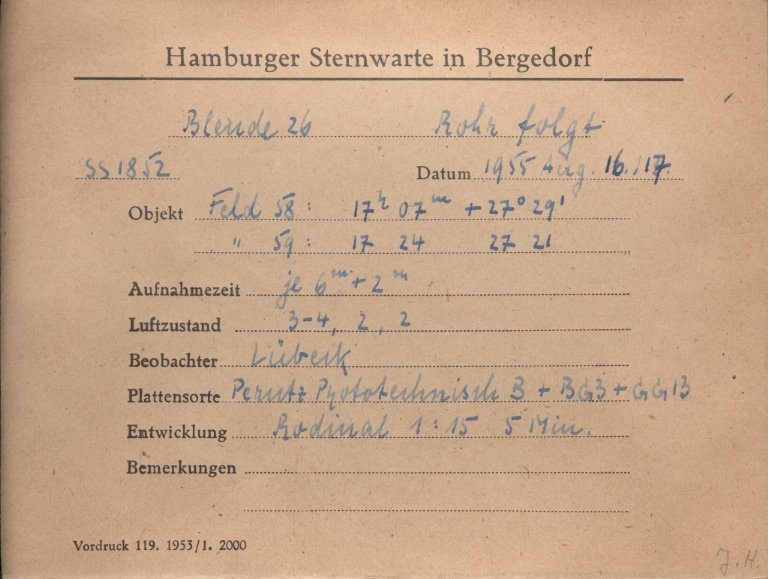 Hamburger Sternwarte in Bergedorf
Blende 26 Rohr folgt
SS1852 Datum 1955 Aug. 16./17.
Objekt Feld 58: 17ʰ 07ᵐ +27° 29'
" 59: 17 24 27 21
Aufnahmezeit je 6ᵐ + 2ᵐ
Luftzustand 3-4, 2, 2
Beobachter Lübeck
Plattensorte Perutz Phototechnisch B + BG3 + GG13
Entwicklung Rodinal 1:15 5 Min.
Bemerkungen
Vordruck 119. 1953/1. 2000
J.H.